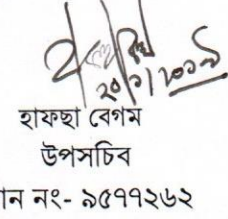 ২০/১/২০১৯
হাফছা বেগম
উপসচিব
ন নং- ৯৫৭৭২৬২